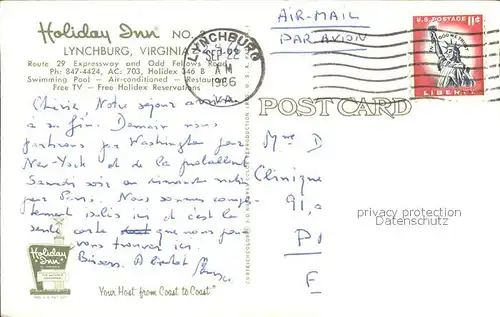 Holiday Inn NO.
LYNCHBURG, VIRGINIA
Route 29 Expressway and Odd Fellows Road
Ph: 847-4424, AC: 703, Holidex 346 B
Swimming Pool — Air-conditioned — Restaurant
Free TV — Free Holidex Reservations
LYNCHBURG
SEP 22
AM
1966
VA.
AIR-MAIL
PAR AVION
U.S. POSTAGE 11¢
IN GOD WE TRUST
LIBERTY
POST CARD
Chérie. Notre séjour arrive
à sa fin. Demain nous
partirons par Washington pour
New-York et de là probablement
Samedi soir ou dimanche
pour Paris. Nous sommes complè-
tement isolés ici et c'est la
seule carte que nous
vons trouver ici.
Bisous. A bientôt
Mme D
Clinique
91,
F
privacy protection
Datenschutz
Holiday Inn
"Your Host from Coast to Coast"